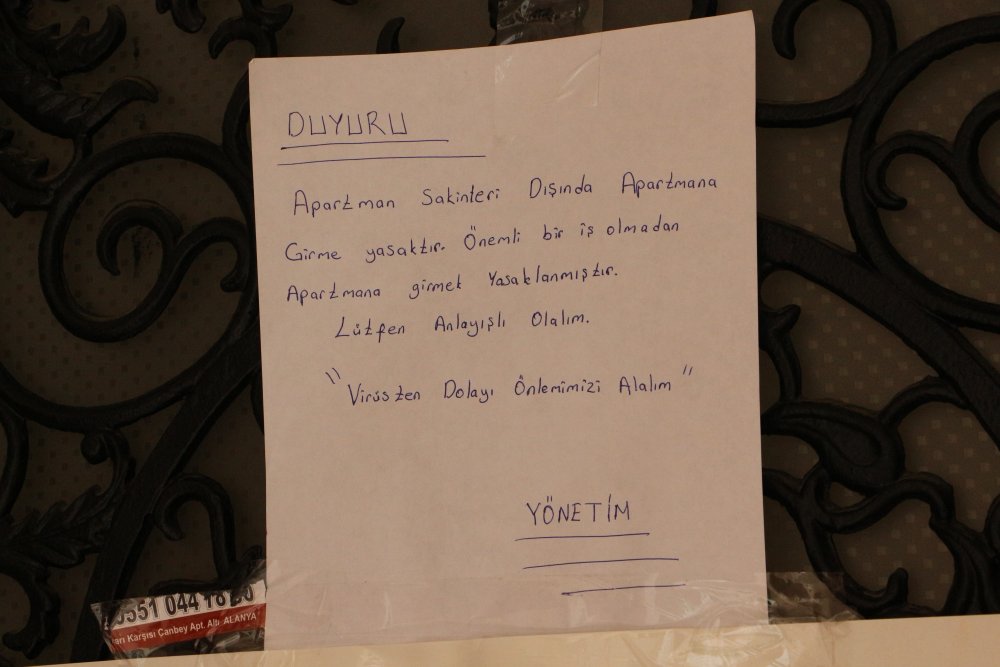 DUYURU
Apartman Sakinleri Dışında Apartmana
Girme yasaktır. Önemli bir iş olmadan
Apartmana girmek Yasaklanmıştır.
Lütfen Anlayışlı Olalım.
"Virüsten Dolayı Önlemimizi Alalım"
YÖNETİM
0551 044 18 20
Karşısı Canbey Apt. Altı ALANYA